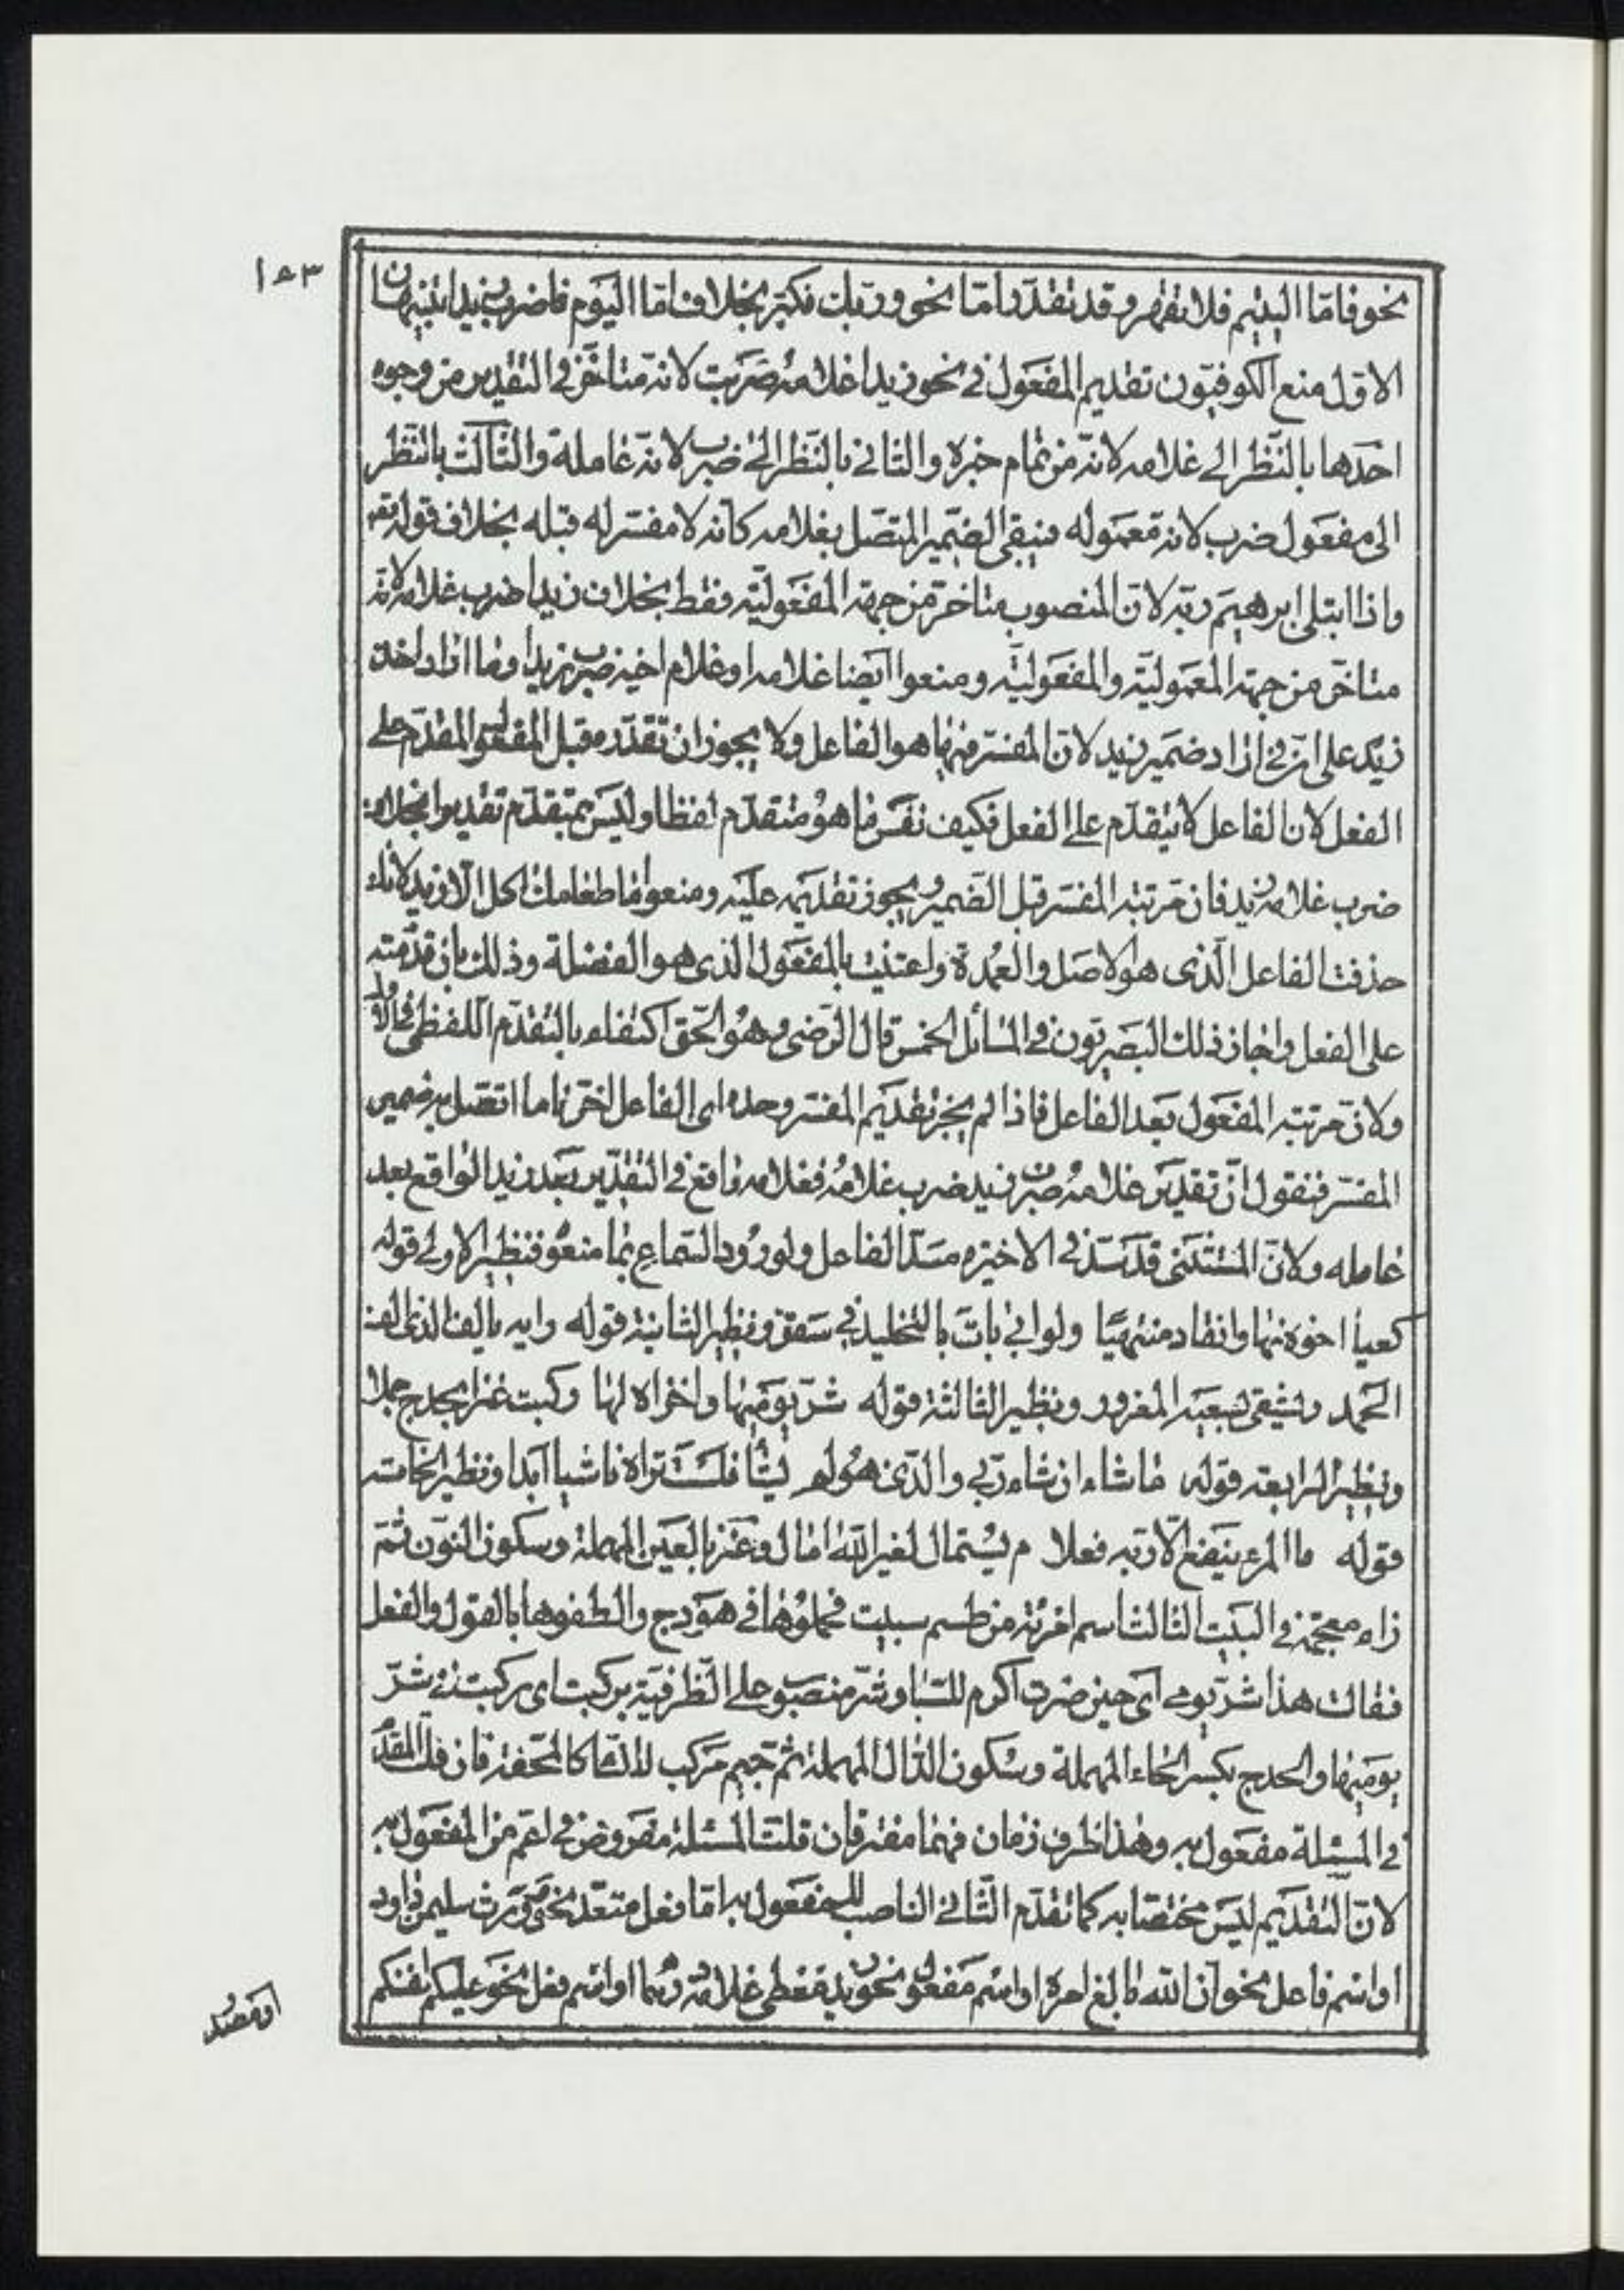 ١٥٣
نحو فامّا اليتيم فلا تقهر وقد تقدّر امّا نحو وربّك فكبّر بخلاف امّا اليوم فاضرب زيدا تنبيهان
الاوّل منع الكوفيّون تقديم المفعول في نحو زيدا غلامه ضربت لانّه متاخّر في التقدير من وجوه
احدها بالنّظر الى غلامه لانّه من تمام خبره والثاني بالنّظر الى ضرب لانّه عامله والثّالث بالنّظر
الى مفعول ضرب لانّه معموله فيبقى الضّمير المتّصل بغلامه كانّه لا مفسّر له قبله بخلاف قوله تعه
واذا ابتلى ابرهيم ربّه لانّ المنصوب متاخّر من جهة المفعوليّة فقط بخلاف زيدا ضرب غلامه لانّه
متاخّر من جهة المعموليّة والمفعوليّة ومنعوا ايضا غلامه او غلام اخيه ضرب زيد او ما اراد اخذ
زيد على انّ في اراد ضمير زيد لانّ المفسّر فيها هو الفاعل ولا يجوز ان تقدّره قبل المفعول المقدّم على
الفعل لان الفاعل لا يتقدّم على الفعل فكيف نفسّر ما هو متقدّم لفظا وليس بمتقدّم تقديرا بخلاف
ضرب غلامه زيد فان مرتبة المفسّر قبل الضمير ويجوز تقديمه عليه ومنعوا ما طعامك اكل الّا زيد لانّك
حذفت الفاعل الّذي هو الاصل والعمدة واعتنيت بالمفعول الذي هو الفضلة وذلك بان قدّمته
على الفعل واجاز ذلك البصريّون في المسائل الخمس قال الرّضي وهو الحقّ اكتفاء بالتقدّم اللّفظي في الاولى
ولانّ مرتبة المفعول بعد الفاعل فاذا لم يجز تقديم المفسّر وحده اى الفاعل اخّرنا ما اتّصل به ضمير
المفسّر فنقول انّ تقدير غلامه ضرب زيد ضرب غلامه فغلامه واقع في التقدير بعد زيد الواقع بعد
عامله ولانّ المستثنى قد سدّ في الاخيرة مسدّ الفاعل ولورود السّماع بما منعوه فنظير الاولى قوله
كعبا اخوه نهى وانقاد منتهيا ولو ابى بات بالتخليد في سقر ونظير الثانية قوله رايه يالف الذي الف
الحمد ويشقى بسعيه المغرور ونظير الثالثة قوله شرّ يوميها واخزاه لها ركبت عنز بحدج جملا
ونظير الرابعة قوله ما شاء انشاء ربّي والّذي هو لم يشأ فلست تراه ناشيا ابدا ونظير الخامسة
قوله ما المرء ينفع الّا ربّه فعلام يستمال لغير اللّه امال وعنز بالعين المهملة وسكون النّون ثمّ
زاء معجمة في البيت الثالث اسم امرئة من طسم سبيت فحملوها في هودج والطفوها بالقول والفعل
فقالت هذا شرّ يومي اى حين صرت اكرم للسّبا وشرّ منصوب على الظرفيّة بركبت اى ركبت في شرّ
يوميها والحدج بكسر الحاء المهملة وسكون الدّال المهملة ثم جيم مركب للنّساء كالمحفّة فان قلت المقدّم
في المسئلة مفعول به وهذا ظرف زمان فهما مفترقان قلت المسئلة مفروضة في اعمّ من المفعول به
لانّ التقديم ليس مختصّا به كما تقدّم الثّاني الناصب للمفعول به امّا فعل متعدّ نحو وورث سليمن داود
او اسم فاعل نحو انّ اللّه بالغ امره او اسم مفعول نحو زيد معطى غلامه درهما او اسم فعل نحو عليكم انفسكم
او مصدر